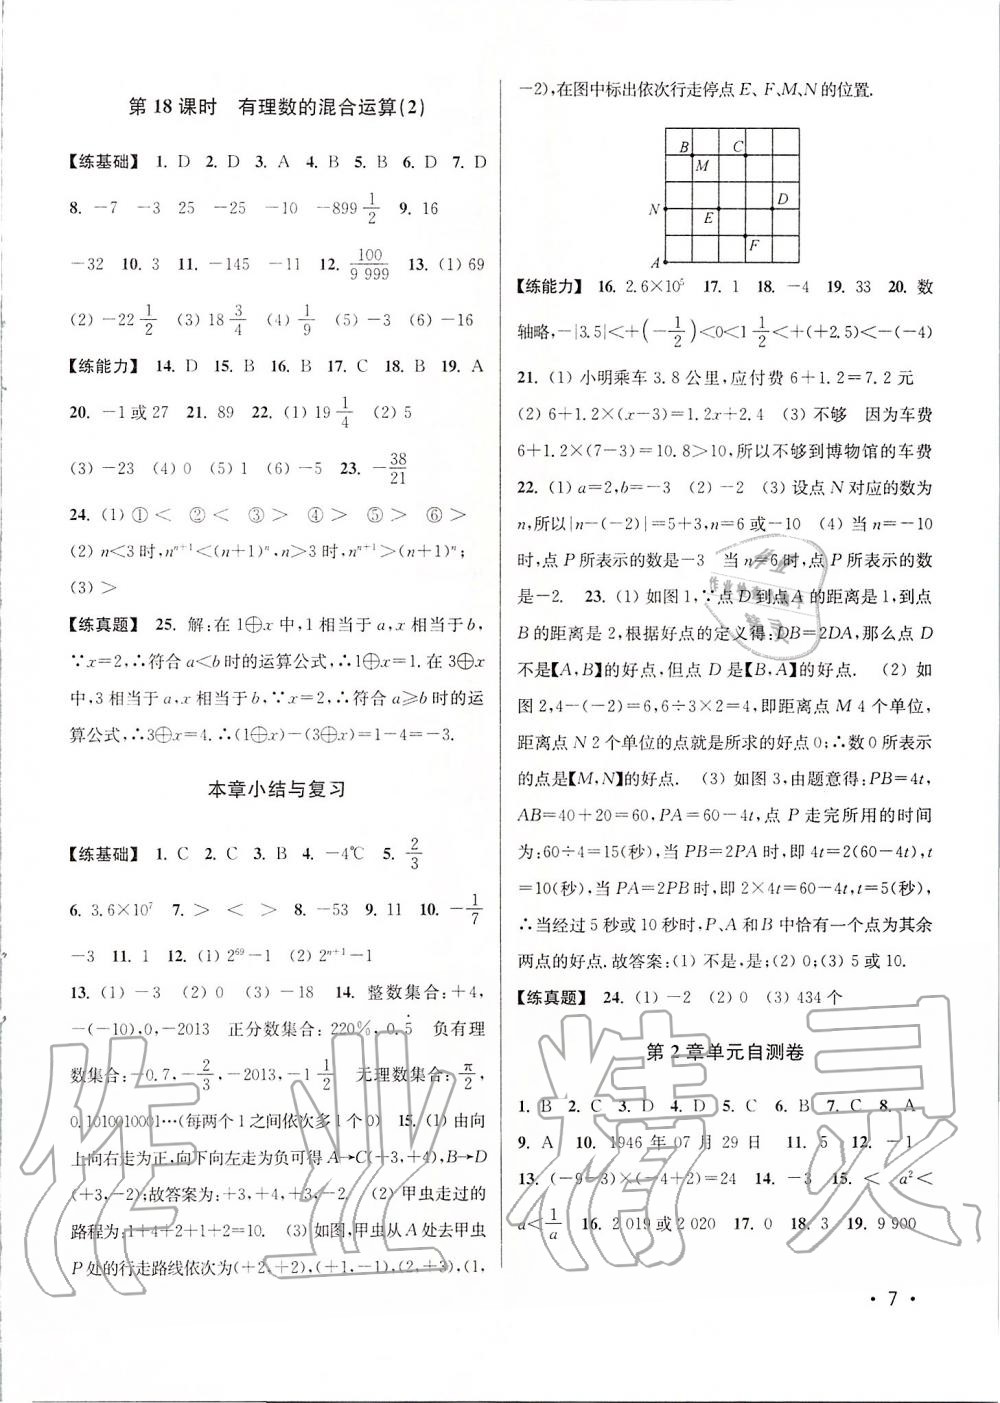 第 18 课时　有理数的混合运算(2)
【练基础】 1. D 2. D 3. A 4. B 5. B 6. D 7. D
8. －7 －3 25 －25 －10 －899 1/2 9. 16
－32 10. 3 11. －145 －11 12. 100/9 999 13. (1) 69
(2) －22 1/2 (3) 18 3/4 (4) 1/9 (5) －3 (6) －16
【练能力】 14. D 15. B 16. B 17. C 18. B 19. A
20. －1 或 27 21. 89 22. (1) 19 1/4 (2) 5
(3) －23 (4) 0 (5) 1 (6) －5 23. －38/21
24. (1) ①＜ ②＜ ③＞ ④＞ ⑤＞ ⑥＞
(2) n＜3 时,nⁿ⁺¹＜(n＋1)ⁿ,n＞3 时,nⁿ⁺¹＞(n＋1)ⁿ;
(3) ＞
【练真题】 25. 解:在 1⊕x 中,1 相当于 a,x 相当于 b,
∵x＝2,∴符合 a＜b 时的运算公式,∴1⊕x＝1. 在 3⊕x
中,3 相当于 a,x 相当于 b,∵x＝2,∴符合 a≥b 时的运
算公式,∴3⊕x＝4. ∴(1⊕x)－(3⊕x)＝1－4＝－3.
本章小结与复习
【练基础】 1. C 2. C 3. B 4. －4℃ 5. 2/3
6. 3.6×10⁷ 7. ＞ ＜ ＞ 8. －53 9. 11 10. －1/7
－3 11. 1 12. (1) 2⁶⁹－1 (2) 2ⁿ⁺¹－1
13. (1) －3 (2) 0 (3) －18 14. 整数集合:＋4,
－(－10),0,－2013 正分数集合:220%,0.5̇ 负有理
数集合:－0.7,－2/3,－2013,－1 1/2 无理数集合:π/2,
0.1010010001…(每两个 1 之间依次多 1 个 0) 15. (1) 由向
上向右走为正,向下向左走为负可得 A→C(＋3,＋4),B→D
(＋3,－2);故答案为:＋3,＋4,＋3,－2. (2) 甲虫走过的
路程为:1＋4＋2＋1＋2＝10. (3) 如图,甲虫从 A 处去甲虫
P 处的行走路线依次为(＋2,＋2),(＋1,－1),(2,＋3),(1,
－2),在图中标出依次行走停点 E、F、M、N 的位置.
B C
M
D
N E
F
A
【练能力】 16. 2.6×10⁵ 17. 1 18. －4 19. 33 20. 数
轴略,－|3.5|＜＋(－1/2)＜0＜1 1/2＜＋(＋2.5)＜－(－4)
21. (1) 小明乘车 3.8 公里,应付费 6＋1.2＝7.2 元
(2) 6＋1.2×(x－3)＝1.2x＋2.4 (3) 不够 因为车费
6＋1.2×(7－3)＝10.8＞10,所以不够到博物馆的车费
22. (1) a＝2,b＝－3 (2) －2 (3) 设点 N 对应的数为
n,所以|n－(－2)|＝5＋3,n＝6 或－10 (4) 当 n＝－10
时,点 P 所表示的数是－3 当 n＝6 时,点 P 所表示的数
是－2. 23. (1) 如图 1,∵点 D 到点 A 的距离是 1,到点
B 的距离是 2,根据好点的定义得:DB＝2DA,那么点 D
不是【A,B】的好点,但点 D 是【B,A】的好点. (2) 如
图 2,4－(－2)＝6,6÷3×2＝4,即距离点 M 4 个单位,
距离点 N 2 个单位的点就是所求的好点 0;∴数 0 所表示
的点是【M,N】的好点. (3) 如图 3,由题意得:PB＝4t,
AB＝40＋20＝60,PA＝60－4t,点 P 走完所用的时间
为:60÷4＝15(秒),当 PB＝2PA 时,即 4t＝2(60－4t),t
＝10(秒),当 PA＝2PB 时,即 2×4t＝60－4t,t＝5(秒),
∴当经过 5 秒或 10 秒时,P、A 和 B 中恰有一个点为其余
两点的好点. 故答案:(1) 不是,是;(2) 0;(3) 5 或 10.
【练真题】 24. (1) －2 (2) 0 (3) 434 个
第 2 章单元自测卷
1. B 2. C 3. D 4. D 5. C 6. B 7. C 8. A
9. A 10. 1946 年 07 月 29 日 11. 5 12. －1
13. (－9－3)×(－4＋2)＝24 14. －3 15. ＜ a²＜
a＜1/a 16. 2 019 或 2 020 17. 0 18. 3 19. 9 900
• 7 •
作业精灵